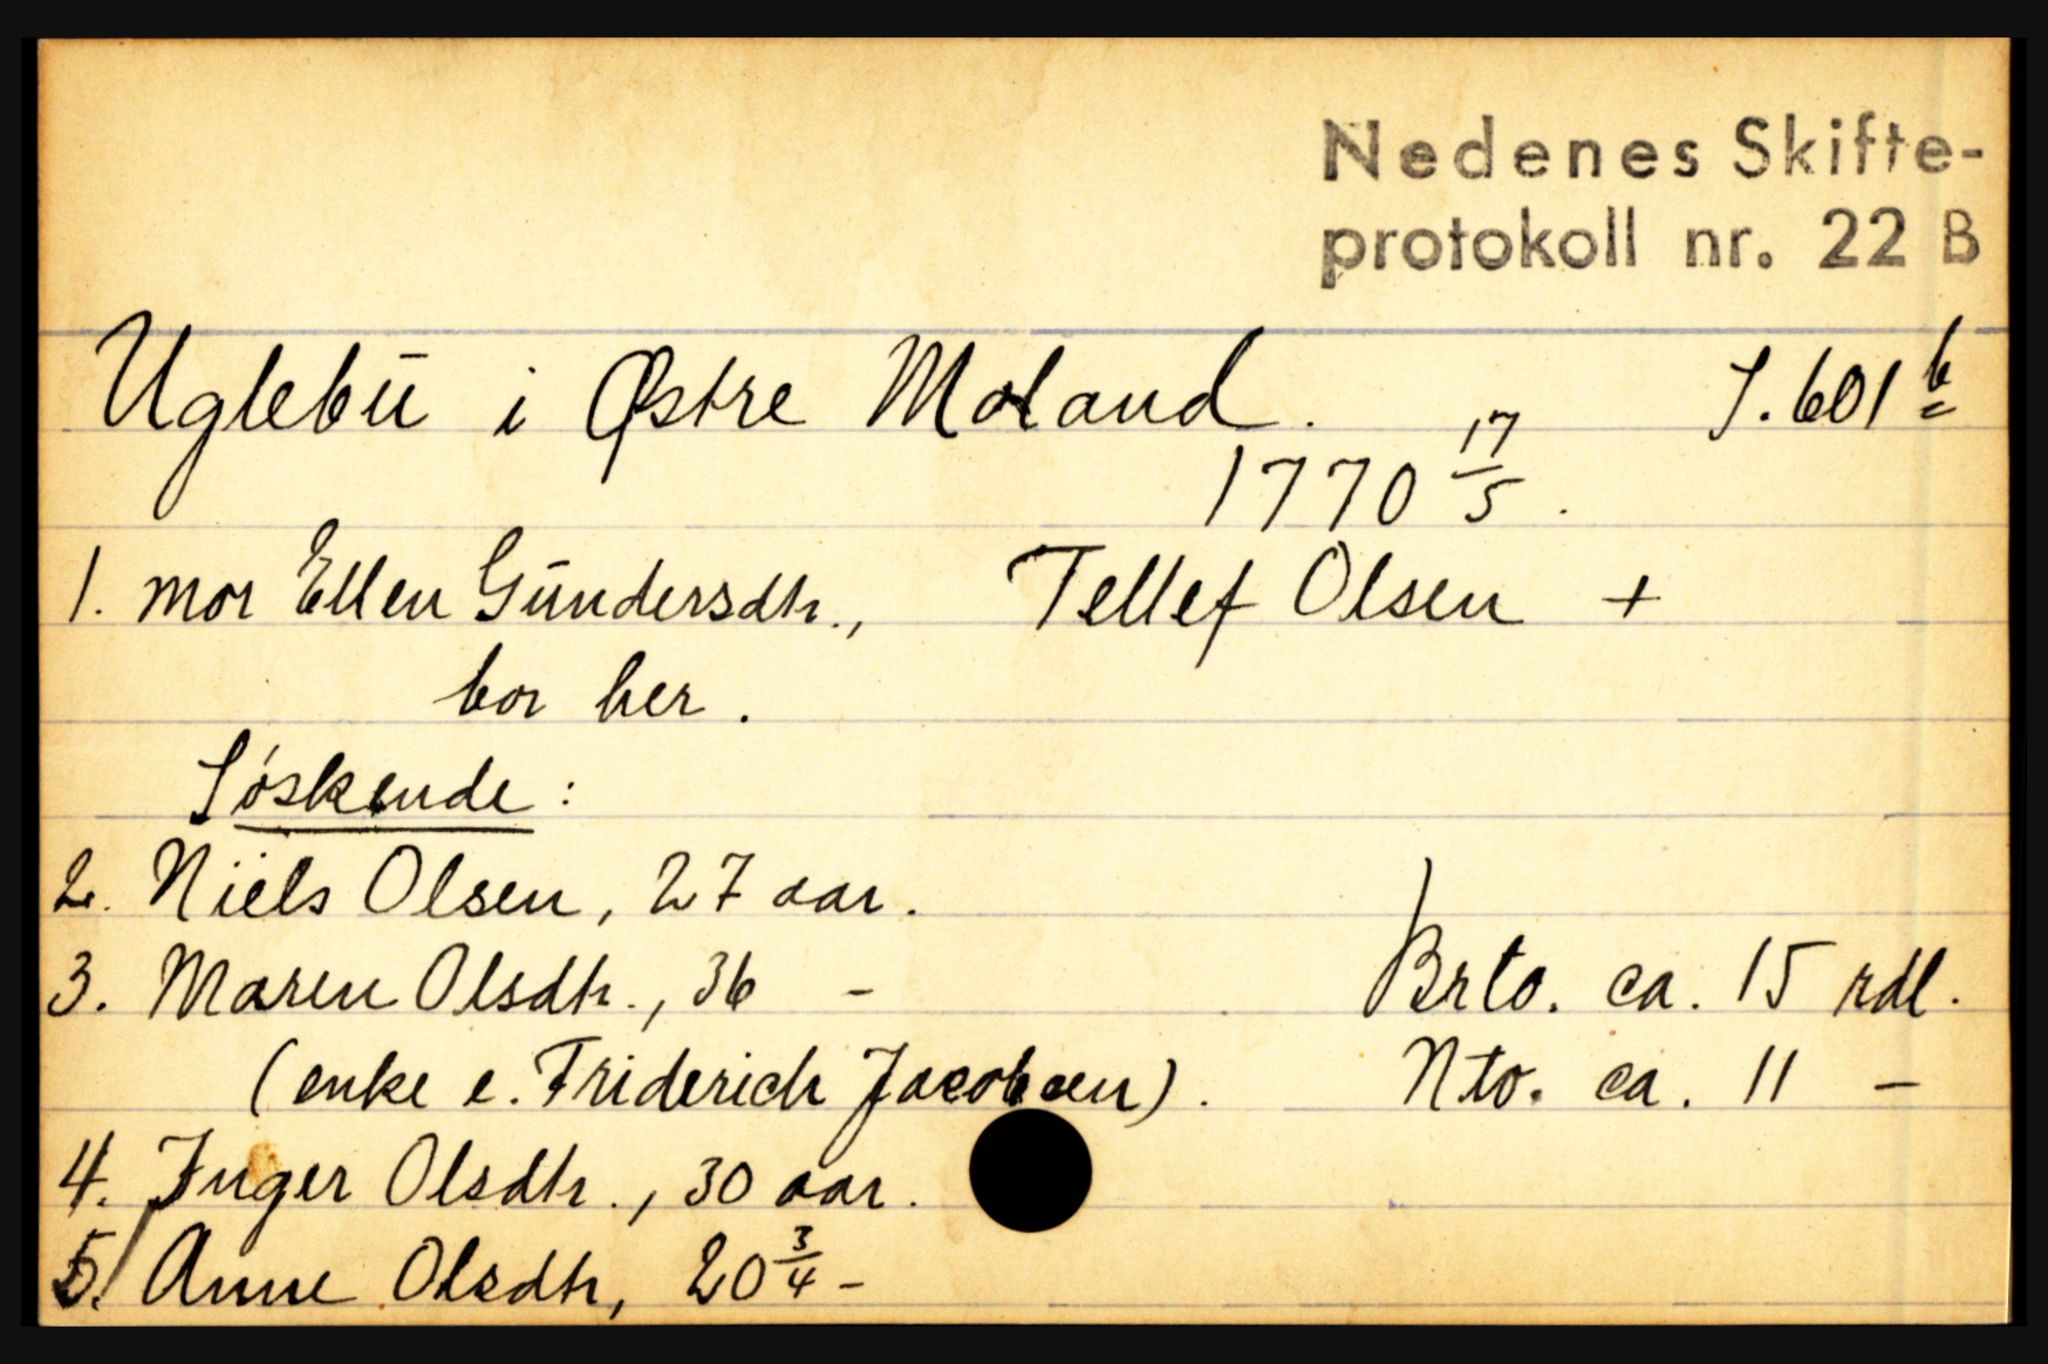 Nedenes Skifte-
protokoll nr. 22 B
Uglebū i Østre Moland. S. 601 b
1770 17/5.
1. mor Ellen Gūndersdtr., Tellef Olsen +
bor her.
Søskende:
2. Niels Olsen, 27 aar.
3. Maren Olsdtr., 36 - Brto. ca. 15 rdl.
(enke e. Friderich Jacobsen). Nto. ca. 11 -
4. Inger Olsdtr., 30 aar.
5. Anne Olsdtr, 20 3/4 -